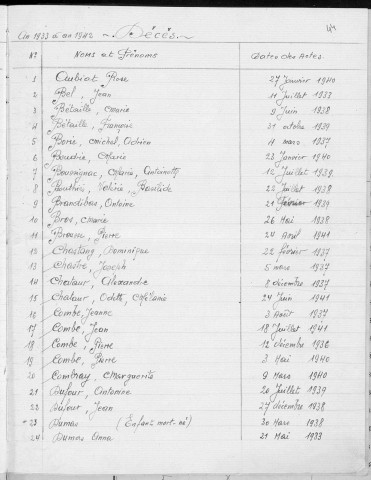 An 1933 à an 1942 - Décès -
N° Noms et Prénoms Dates des Actes
1 Aubiat Rose 27 Janvier 1940
2 Bel, Jean 11 Juillet 1933
3 Bétaille, Marie 9 Juin 1938
4 Bétaille, François 31 octobre 1939
5 Borie, Michel, Adrien 11 mars 1937
6 Boudie, Marie 23 Janvier 1940
7 Maria, Antoinette 12 Juillet 1939
8 Bouthié, Bastide 22 Juillet 1938
9 Brandibas, Antoine 21 février 1939
10 Bros, Marie 26 Mai 1938
11 Brousse, Pierre 24 Avril 1941
12 Chastang, Dominique 22 février 1937
13 Chastre, Joseph 5 mars 1937
14 Chataur, Alexandre 8 décembre 1937
15 Chataur, Odette, Mélanie 24 Juin 1941
16 Combe, Jeanne 2 Août 1937
17 Combe, Jean 18 Juillet 1941
18 Combe, Pierre 12 décembre 1936
19 Combe, Pierre 2 Mai 1940
20 Combray, Marguerite 9 Mars 1940
21 Dufour, Antonine 20 Juillet 1939
22 Dufour, Jean 27 décembre 1938
23 Dumas (Enfant mort-né) 30 Mars 1938
24 Dumas Anna 21 Mai 1933